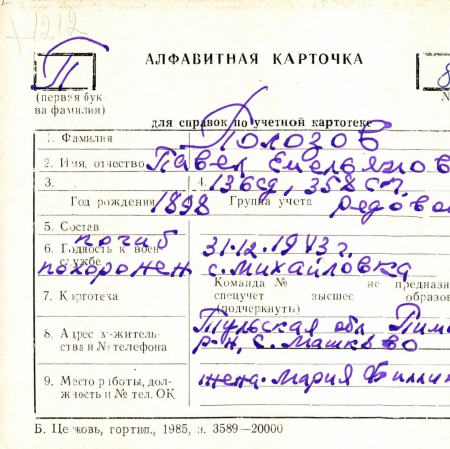 1212
П
АЛФАВИТНАЯ КАРТОЧКА
8
(первая бук-
ва фамилии)
№
для справок по учетной картотеке
1. Фамилия Полозов
2. Имя, отчество Павел Емельянов
3. 4. 136сд, 358 сп.
Год рождения 1898 Группа учета рядовой
5. Состав погиб 31.12.1943г.
6. Годность к воен.
службе похоронен с. Михайловка
Команда № не предназн
7. Картотека спецучет высшее образов
(подчеркнуть)
8. Адрес житель-
ства и № телефона
Тульская обл
р-н, с. Машково
9. Место работы, дол-
жность и № тел. ОК
жена. Мария
Б. Церковь, гортип., 1985, з. 3589—20000